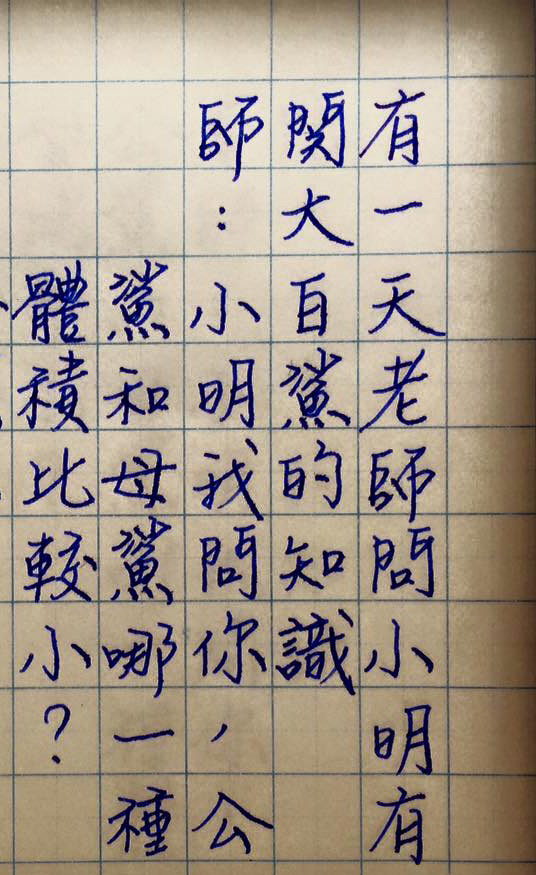 有一天老師問小明有
関大白鯊的知識
師：小明我問你，公
鯊和母鯊哪一種
體積比較小？